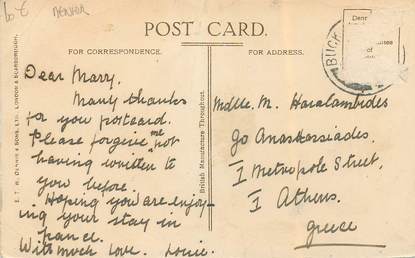 to £ DENVER
POST CARD.
FOR CORRESPONDENCE.
FOR ADDRESS.
BUCK
Dear Marry.
Many thanks
for you postcard.
Please forgive me not
having written to
you before.
Hoping you are enjoy-
ing your stay in
france.
With much love. Louie.
E. T. W. DENNIS & SONS, LTD. LONDON & SCARBOROUGH.
British Manufacture Throughout.
Mdlle. M. Haralambides
c/o Anastassiades.
1 Metropole Street.
1 Athens.
Greece